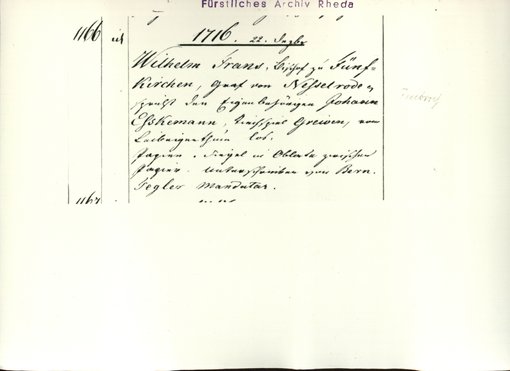 Fürstliches Archiv Rheda
1166
1716. 22. Dezbr
Wilhelm Franz, Bischof zu Fünf-
kirchen, Graf von Nesselrode,
spricht den Eigenbehörigen Johann
Esskemann, Kirchspiel Greiven, vom
Leibeigenthum los.
Papier. Siegel in Oblate zwischen
Papier. Unterschrieben von Bern.
Tegler Mandatar.
1167